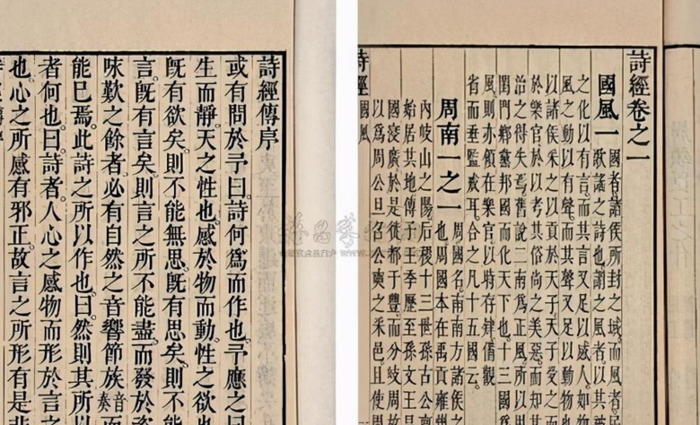 詩經傳序
或有問於予曰。詩何爲而作也。予應之曰。
生而靜。天之性也。感於物而動。性之欲也
既有欲矣。則不能無思。既有思矣。則不能
言。既有言矣。則言之所不能盡。而發於咨
味歎之餘者。必有自然之音響節族音奏而
能已焉。此詩之所以作也。曰。然則其所以
者何也。曰。詩者。人心之感物而形於言之
也。心之所感有邪正。故言之所形有是非
詩經卷之一
國風一 國者諸侯所封之域而風者民
歌謠之詩也謂之風者以其
之化以有言而其言又足以感人如
風之動以有聲而其聲又足以動物也
以諸侯采之以貢於天子天子受而
於樂官於以考其俗尚之美惡而知其
治之得失焉舊說二南爲正風所以用
閨門鄉黨邦國而化天下也十三國
風則亦領在樂官以時存肄備觀
省而垂監戒耳合之凡十五國云
周南一之一 周國名南南方諸侯之
也周國本在禹貢雍州
內岐山之陽后稷十三世孫古公亶
始居其地傳子王季歷至孫文王昌
國寖廣於是徙都于豐而分岐周故
以爲周公旦召公奭之采邑且使周
詩經 國風